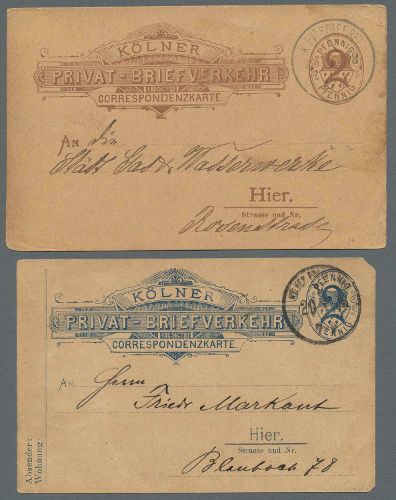 KÖLNER
PRIVAT-BRIEFVERKEHR
CORRESPONDENZKARTE
PFENNIG
2
PFENNIG
AN die
Städt Gas & Wasserwerke
Hier.
Strasse und Nr.
Rosenstrasse
KÖLNER
PRIVAT-BRIEFVERKEHR
CORRESPONDENZKARTE.
PFENNIG
2
PFENNIG
An
Herrn
Friedr Markant
Hier.
Strasse und Nr.
Blaubach 78
Absender:
Wohnung: